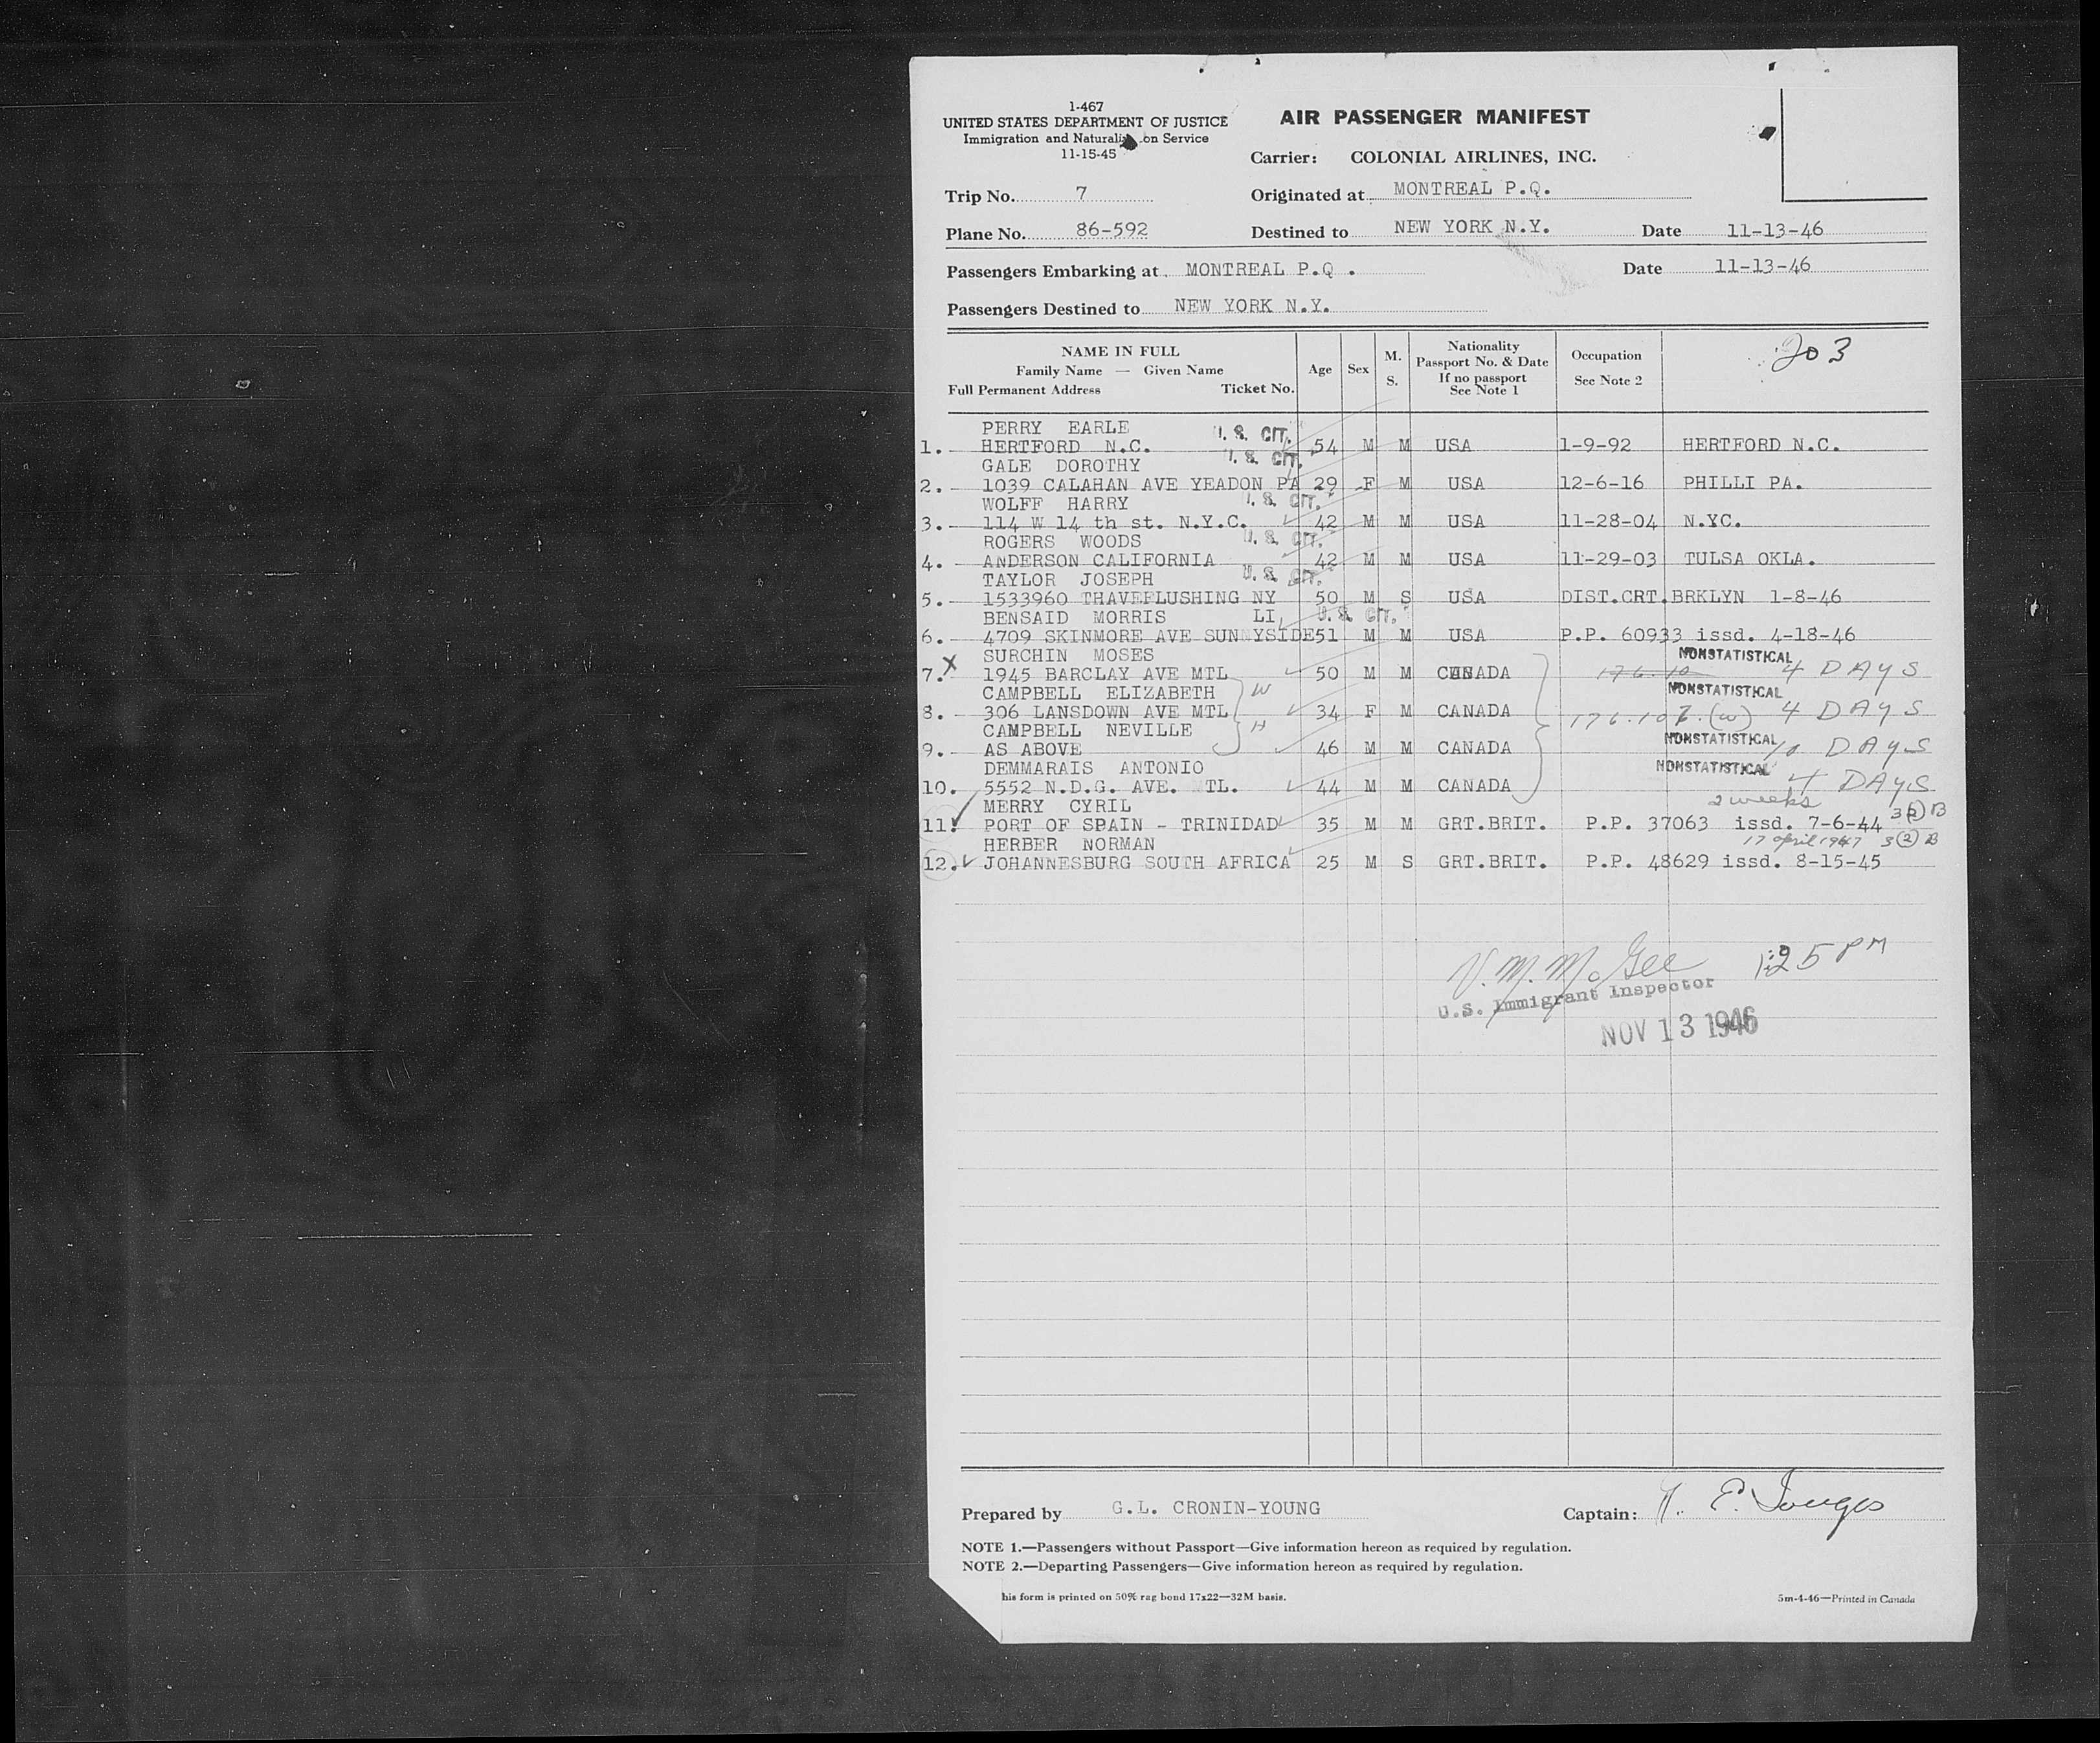 1-467
UNITED STATES DEPARTMENT OF JUSTICE
Immigration and Naturali on Service
11-15-45
AIR PASSENGER MANIFEST
Carrier: COLONIAL AIRLINES, INC.
Trip No. 7 Originated at MONTREAL P.Q.
Plane No. 86-592 Destined to NEW YORK N.Y. Date 11-13-46
Passengers Embarking at MONTREAL P.Q . Date 11-13-46
Passengers Destined to NEW YORK N.Y.
NAME IN FULL
Family Name — Given Name
Full Permanent Address Ticket No.
Age Sex M. S.
Nationality
Passport No. & Date
If no passport
See Note 1
Occupation
See Note 2
203
PERRY EARLE U.S. CIT.
1. HERTFORD N.C. 54 M M USA 1-9-92 HERTFORD N.C.
GALE DOROTHY U.S. CIT.
2. 1039 CALAHAN AVE YEADON PA 29 F M USA 12-6-16 PHILLI PA.
WOLFF HARRY U.S. CIT.
3. 114 W 14 th st. N.Y.C. 42 M M USA 11-28-04 N.YC.
ROGERS WOODS U.S. CIT.
4. ANDERSON CALIFORNIA 42 M M USA 11-29-03 TULSA OKLA.
TAYLOR JOSEPH U.S. CIT.
5. 1533960 THAVEFLUSHING NY 50 M S USA DIST.CRT.BRKLYN 1-8-46
BENSAID MORRIS LI, U.S. CIT.
6. 4709 SKINMORE AVE SUNNYSIDE 51 M M USA P.P. 60933 issd. 4-18-46
SURCHIN MOSES NONSTATISTICAL
7. X 1945 BARCLAY AVE MTL 50 M M CANADA 176.10 4 DAYS
CAMPBELL ELIZABETH W NONSTATISTICAL
8. 306 LANSDOWN AVE MTL 34 F M CANADA 176.107.(W) 4 DAYS
CAMPBELL NEVILLE H NONSTATISTICAL
9. AS ABOVE 46 M M CANADA 10 DAYS
DEMMARAIS ANTONIO NONSTATISTICAL
10. 5552 N.D.G. AVE. TL. 44 M M CANADA 4 DAYS
MERRY CYRIL 2 weeks
11. PORT OF SPAIN - TRINIDAD 35 M M GRT.BRIT. P.P. 37063 issd. 7-6-44 3(2)B
HERBER NORMAN 17 april 1947 3(2)B
12. JOHANNESBURG SOUTH AFRICA 25 M S GRT.BRIT. P.P. 48629 issd. 8-15-45
V. M. McGee 1:25 PM
U.S. Immigrant Inspector
NOV 13 1946
Prepared by G.L. CRONIN-YOUNG Captain:
NOTE 1.—Passengers without Passport—Give information hereon as required by regulation.
NOTE 2.—Departing Passengers—Give information hereon as required by regulation.
his form is printed on 50% rag bond 17x22—32M basis. 5m-4-46—Printed in Canada